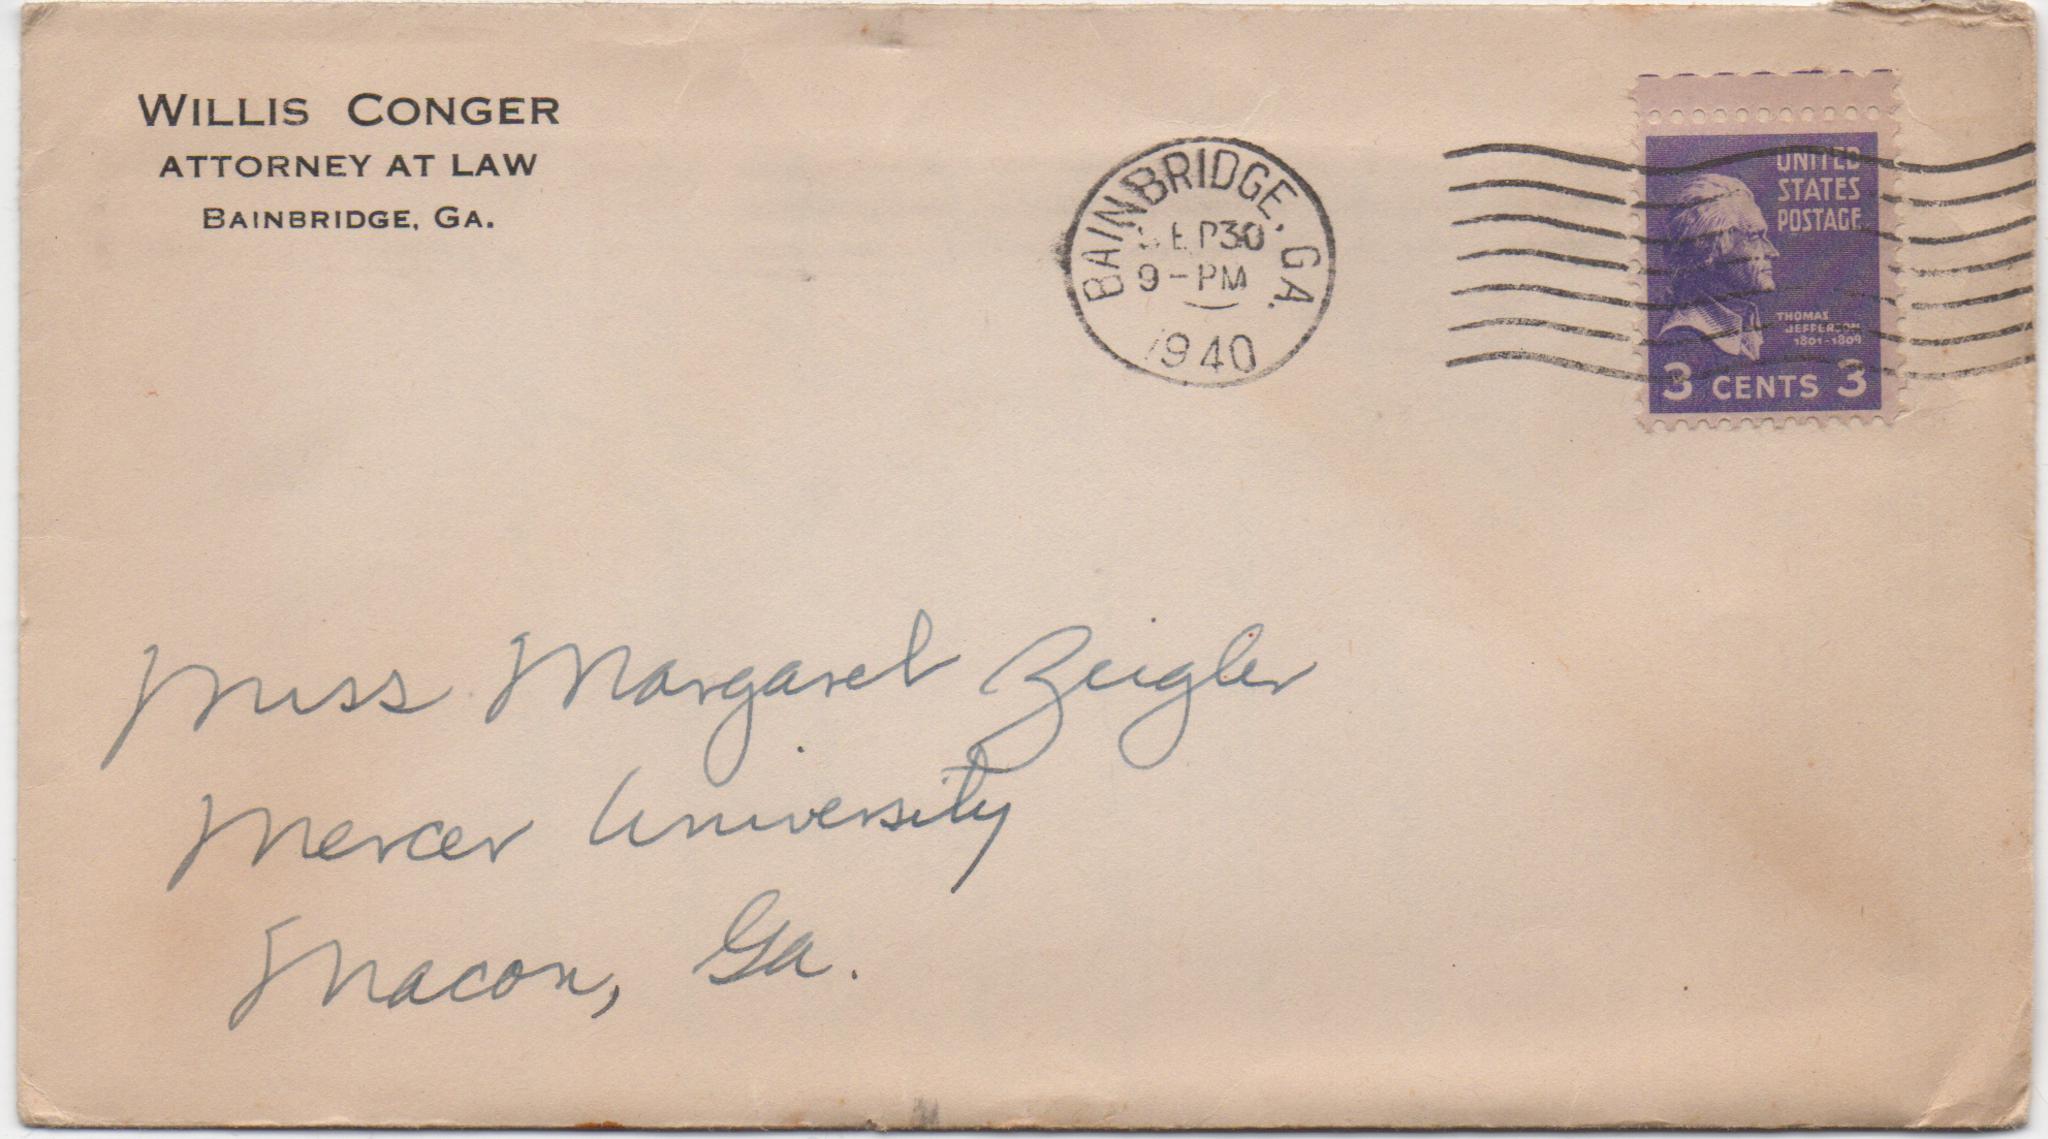 WILLIS CONGER
ATTORNEY AT LAW
BAINBRIDGE, GA.
BAINBRIDGE, GA.
SEP 30
9-PM
1940
UNITED
STATES
POSTAGE
THOMAS
JEFFERSON
1801-1809
3 CENTS 3
Miss Margaret Zeigler
Mercer University
Macon, Ga.